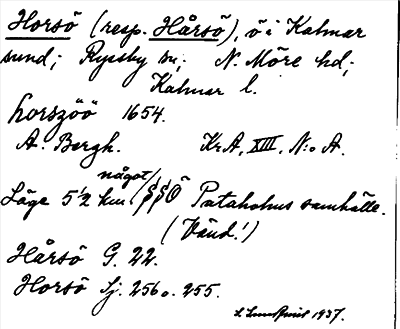 Horsö (resp. Hårsö), ö i Kalmar
sund; Ryssby sn; N. Möre hd;
Kalmar l.
horszöö 1654.
A. Bergh. KrA, XIII, N:o A.
något
Läge 5½ km SSÖ Pataholms samhälle.
(Vänd!)
Hårsö G. 22.
Horsö Sj. 256 o. 255.
1937.